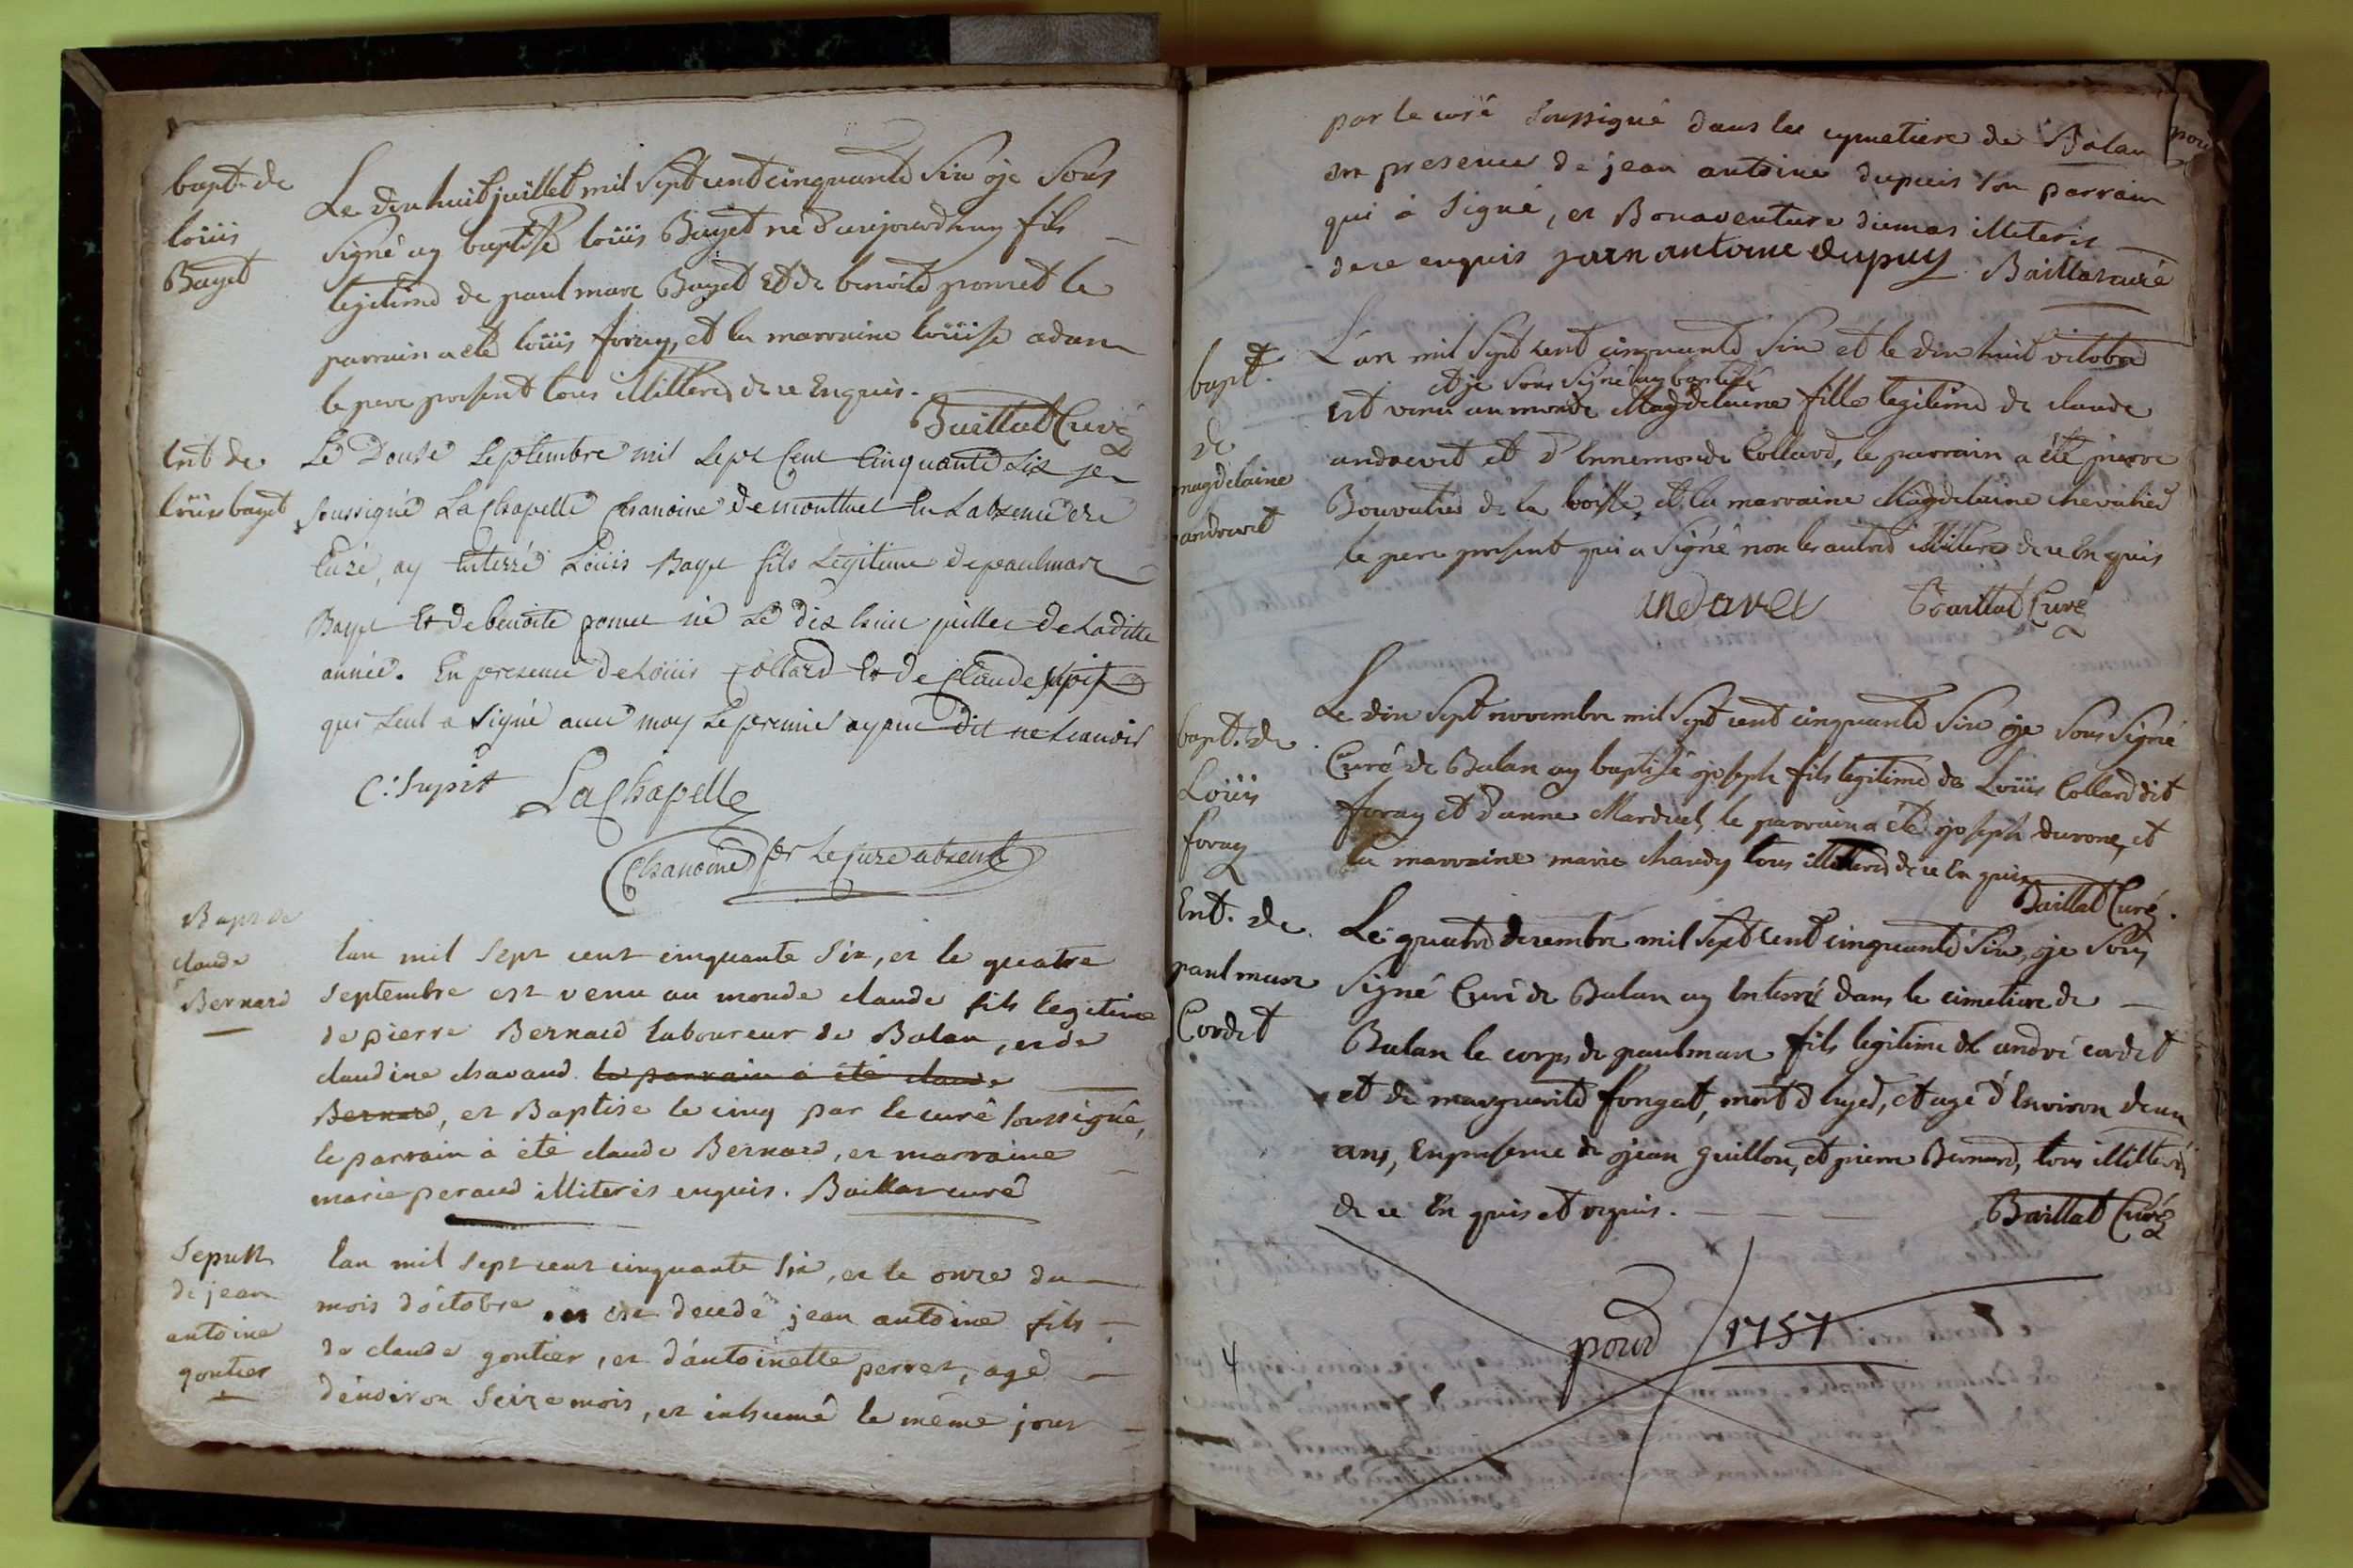 bapt. de
loüis
Bayet
Le dix huit juillet mil Sept cent cinquante Six je Sous
Signé ay baptisé loüis Bayet né d'aujourdhuy fils
legitime de paul marc Bayet Et de benoite ponset le
parrain a été loüis foray, et la marraine loüise adam
le pere present tous illitteres de ce Enquis.
Baillat Curé
Ent de
loüis bayet
Le Douse Septembre mil Sept Cent Cinquante Six je
soussigné LaChapelle Chanoine de montluel En Labsence de
Curé, ay Enterré Loüis Bayet fils Legitime de paulmarc
Bayet Et De benoite ponset né Le Dix huit juillet De Laditte
année. En presence De Loüis Collard Et De Claude Supit
qui Seul a Signé avec moy Le premier ayant Dit ne scavoir
C. Supit LaChapelle
Chanoine pr Le Curé absent
Bapt de
claude
Bernard
Lan mil Sept cent cinquante Six, et le quatre
Septembre est venu au monde claude fils legitime
de pierre Bernard laboureur de Balan, et de
claudine chavand le parrain à été claude
Bernard, et Baptise le cinq par le curé soussigné,
le parrain à été claude Bernard, et marraine
marie peraud illiterés enquis. Baillat curé
Sepult
de jean
antoine
gontier
Lan mil Sept cent cinquante Six, et le onze du
mois d'octobre est decedé jean antoine fils
de claude gontier, et d'antoinette perret, agé
d'environ Seize mois, et inhumé le même jour
par le curé soussigné dans le cymetiere de Balan
en presence de jean antoine dupuis son parrain
qui à Signé, et Bonaventure dumas illiteris
de ce enquis jean antoine dupuy Baillat curé
bapt.
de
magdelaine
andrevet
L'an mil Sept cent cinquante Six et le dix huit octobre
et je Sous Signé ay baptisé
Est venu au monde Magdelaine fille legitime de claude
andrevet et d'Ennemonde Collard, le parrain a été pierre
Bouvatier de la boisse, et la marraine Magdelaine chevalier
le pere present qui a Signé non les autres illitteres de ce Enquis
andrevet Baillat Curé
bapt. de
Loüis
foray
Le dix Sept novembre mil Sept cent cinquante Six je Sous Signé
Curé de Balan ay baptisé joseph fils legitime de Loüis Collard dit
foray et d'anne Marduel, le parrain a été joseph durone, et
la marraine marie chardy tous illitteres de ce Enquis
Baillat Curé.
Ent. de
paul marc
Cordet
Le quatre decembre mil Sept cent cinquante Six, je Sous
Signé Curé de Balan ay Enterré dans le cimetiere de
Balan le corps de paulmarc fils legitime de andré cordet
et de marguerite fongat, mort d'hyer, et agé d'Environ deux
ans, En presence de jean guillon, et pierre Bernard, tous illitterés
de ce Enquis et requis. Baillat Curé
pour 1757
4